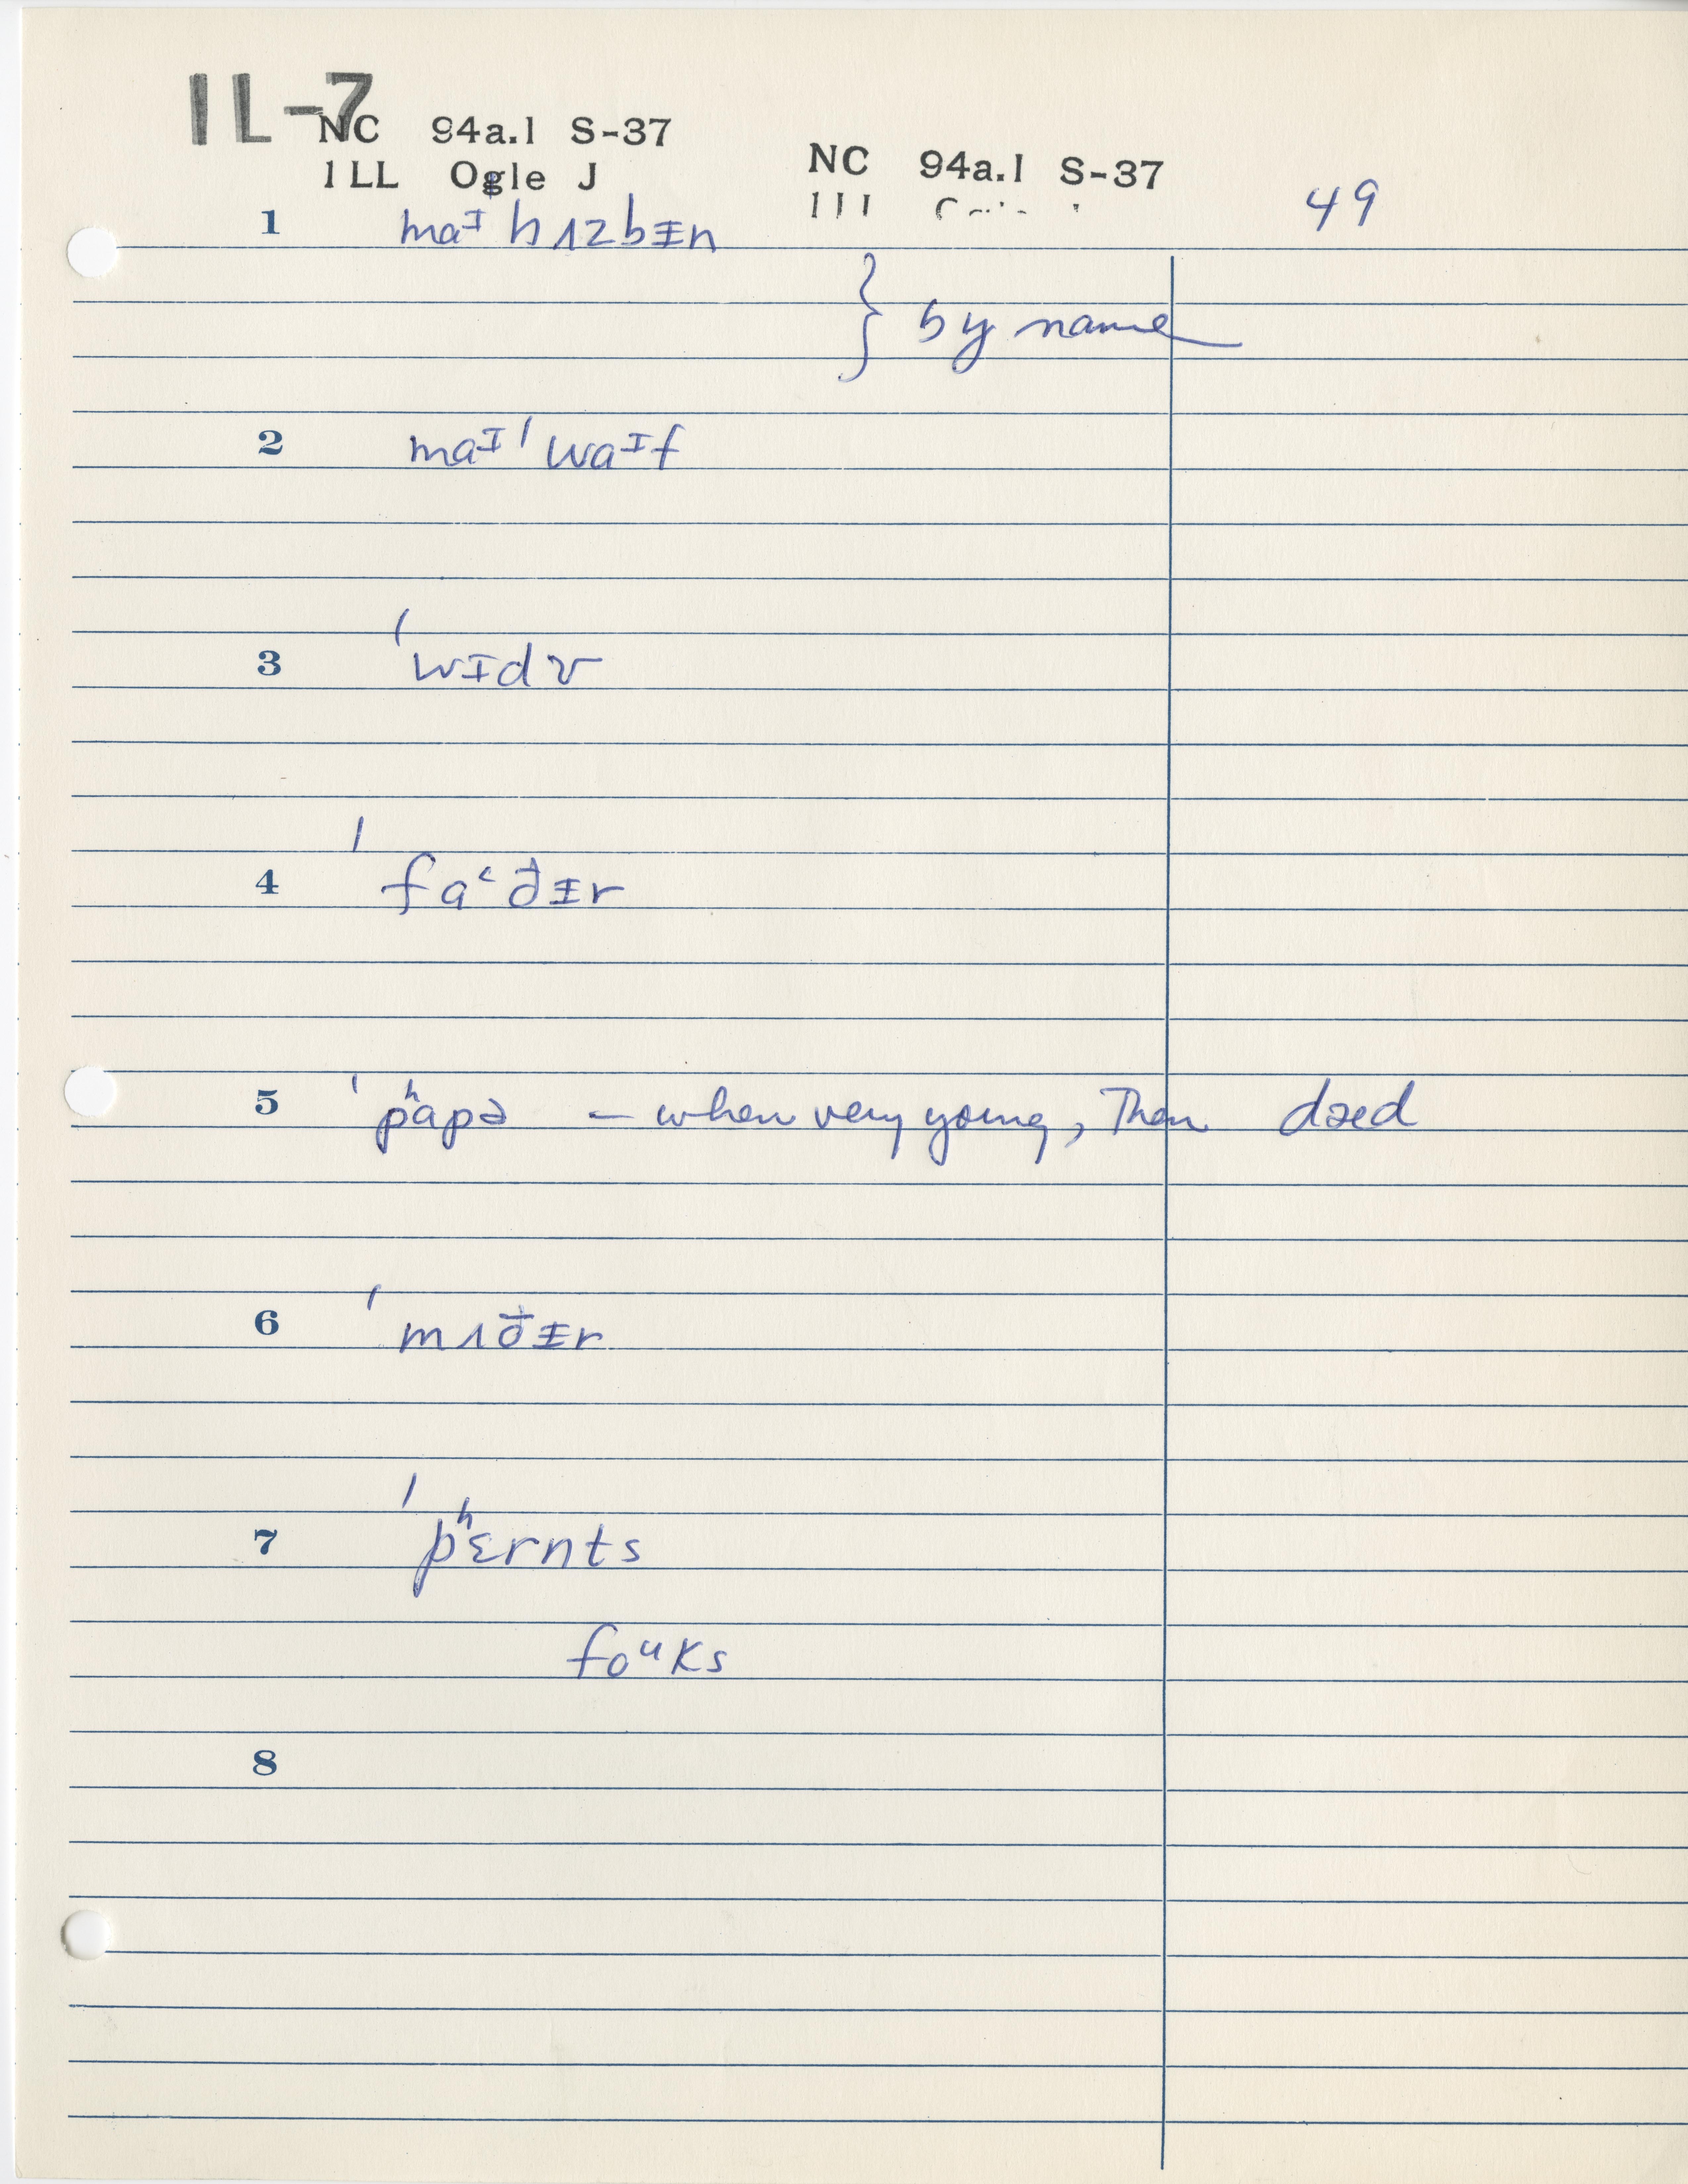 IL-7
NC 94a.1 S-37
ILL Ogle J
NC 94a.1 S-37
49
1 maᴵ hʌzbᵻn
} by name
2 maᴵ ˈwaᴵf
3 ˈwɪdʊ
4 ˈfa˂ðᵻr
5 ˈpʰapə – when very young, Then dæd
6 ˈmʌðᵻr
7 ˈpʰɛrnts
foᵘks
8